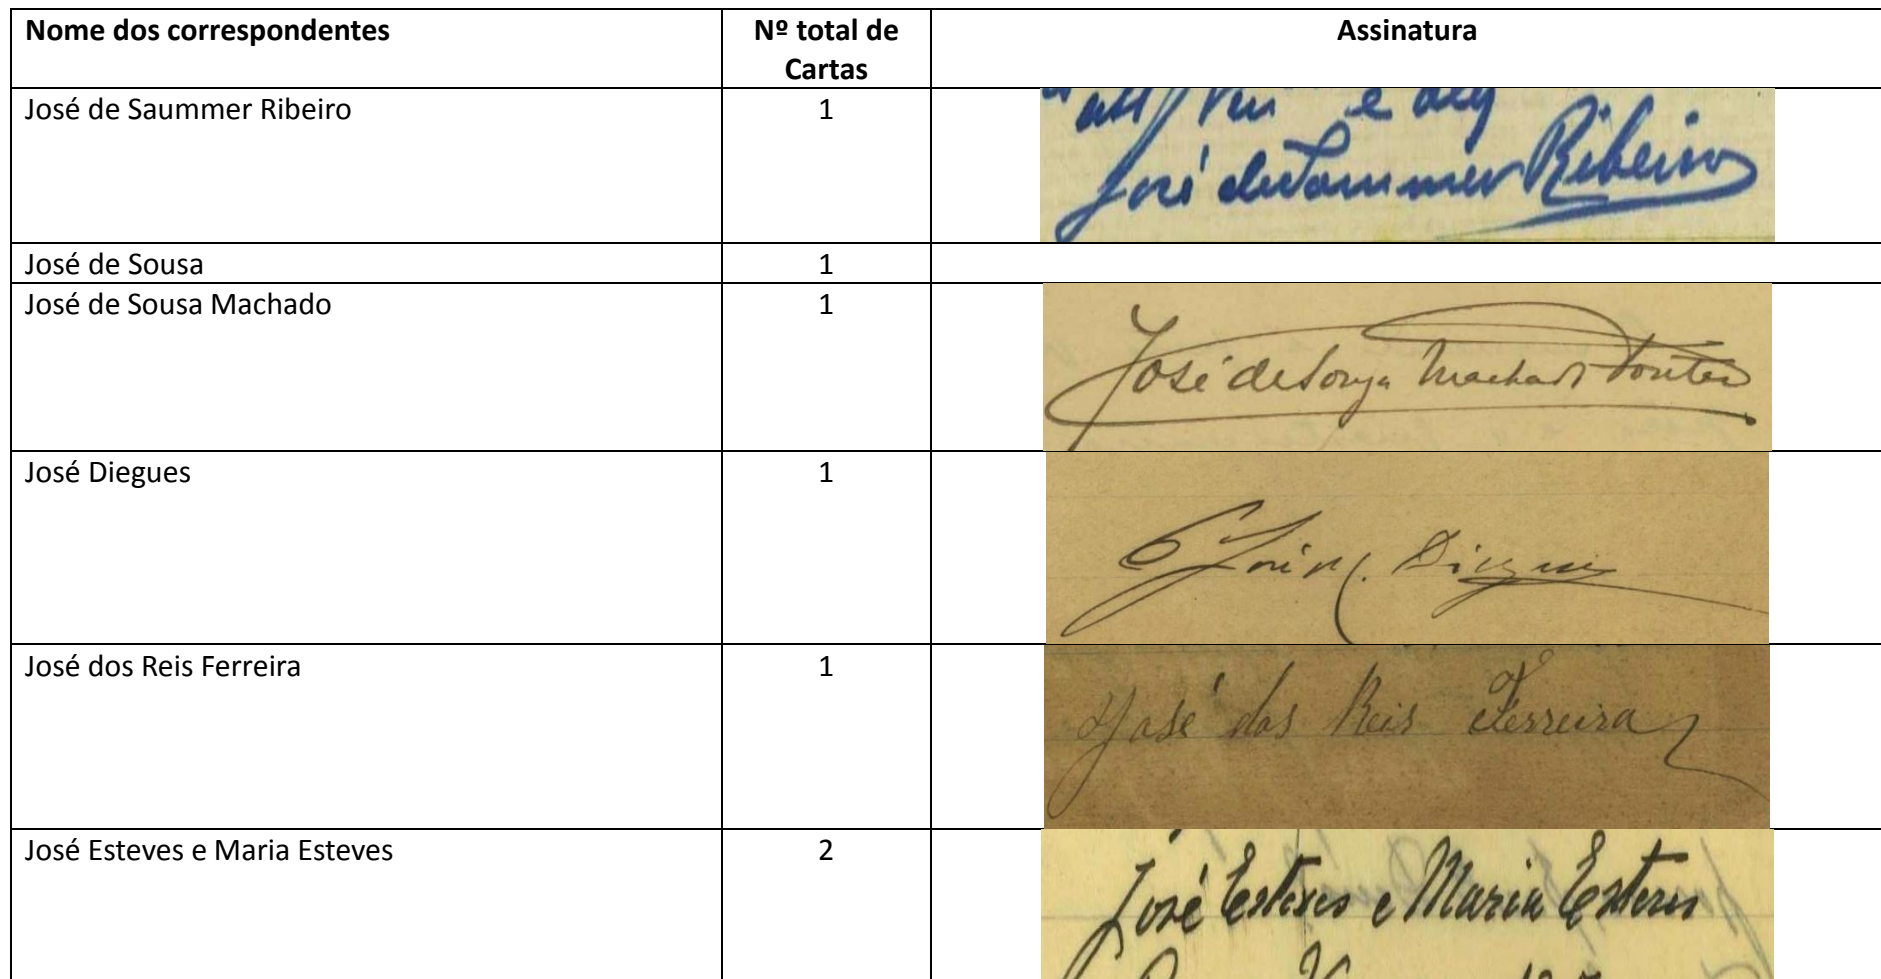 Nome dos correspondentes
Nº total de
Cartas
Assinatura
José de Saummer Ribeiro
1
e
José de Sommer Ribeiro
José de Sousa
1
José de Sousa Machado
1
José de Souza Machado Fontes
José Diegues
1
José Diegues
José dos Reis Ferreira
1
José dos Reis Ferreira
José Esteves e Maria Esteves
2
José Esteves e Maria Esteves